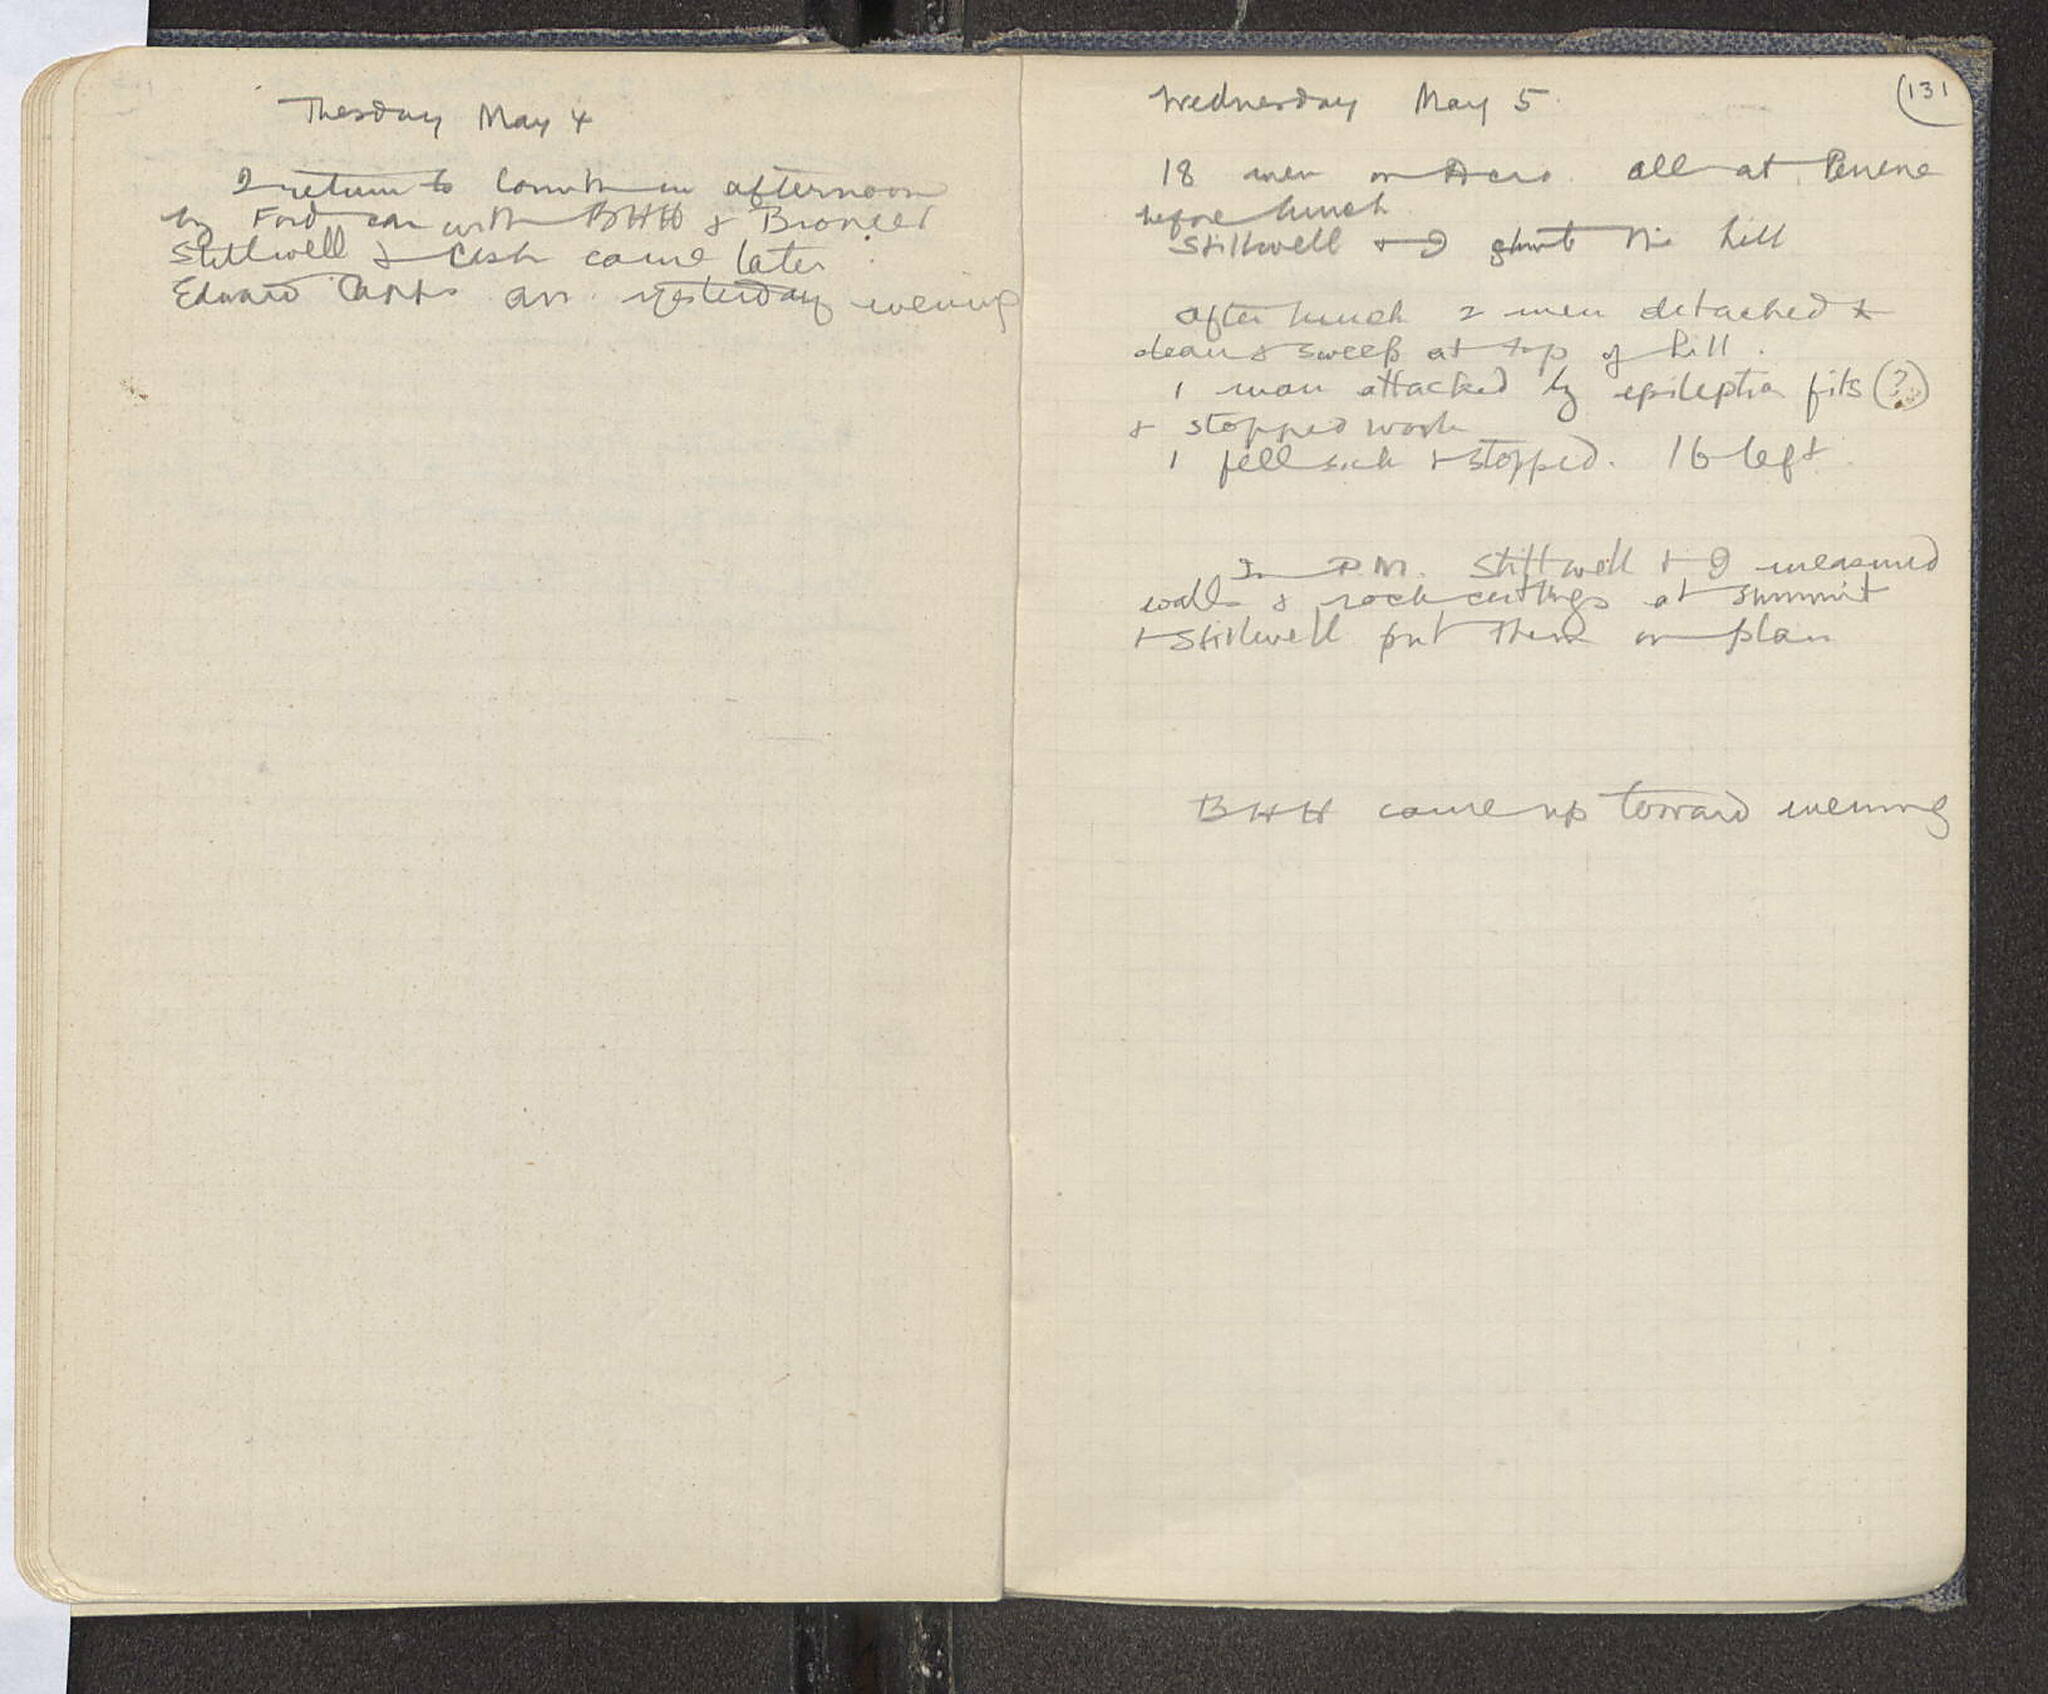 Tuesday May 4
I return to Corinth in afternoon
by Ford car with BHH & Broneer
Stillwell & Cash came later.
Edward Capps arr. yesterday evening
131
Wednesday May 5.
18 men on Acro. All at Pirene
before lunch
Stillwell & I the hill
After lunch 2 men detached to
clean & sweep at top of hill.
1 man attacked by epileptic fits (?)
& stopped work
1 fell sick & stopped. 16 left.
In P.M. Stillwell & I measured
walls & rock cuttings at summit
& Stillwell put them on plan
BHH came up toward evening